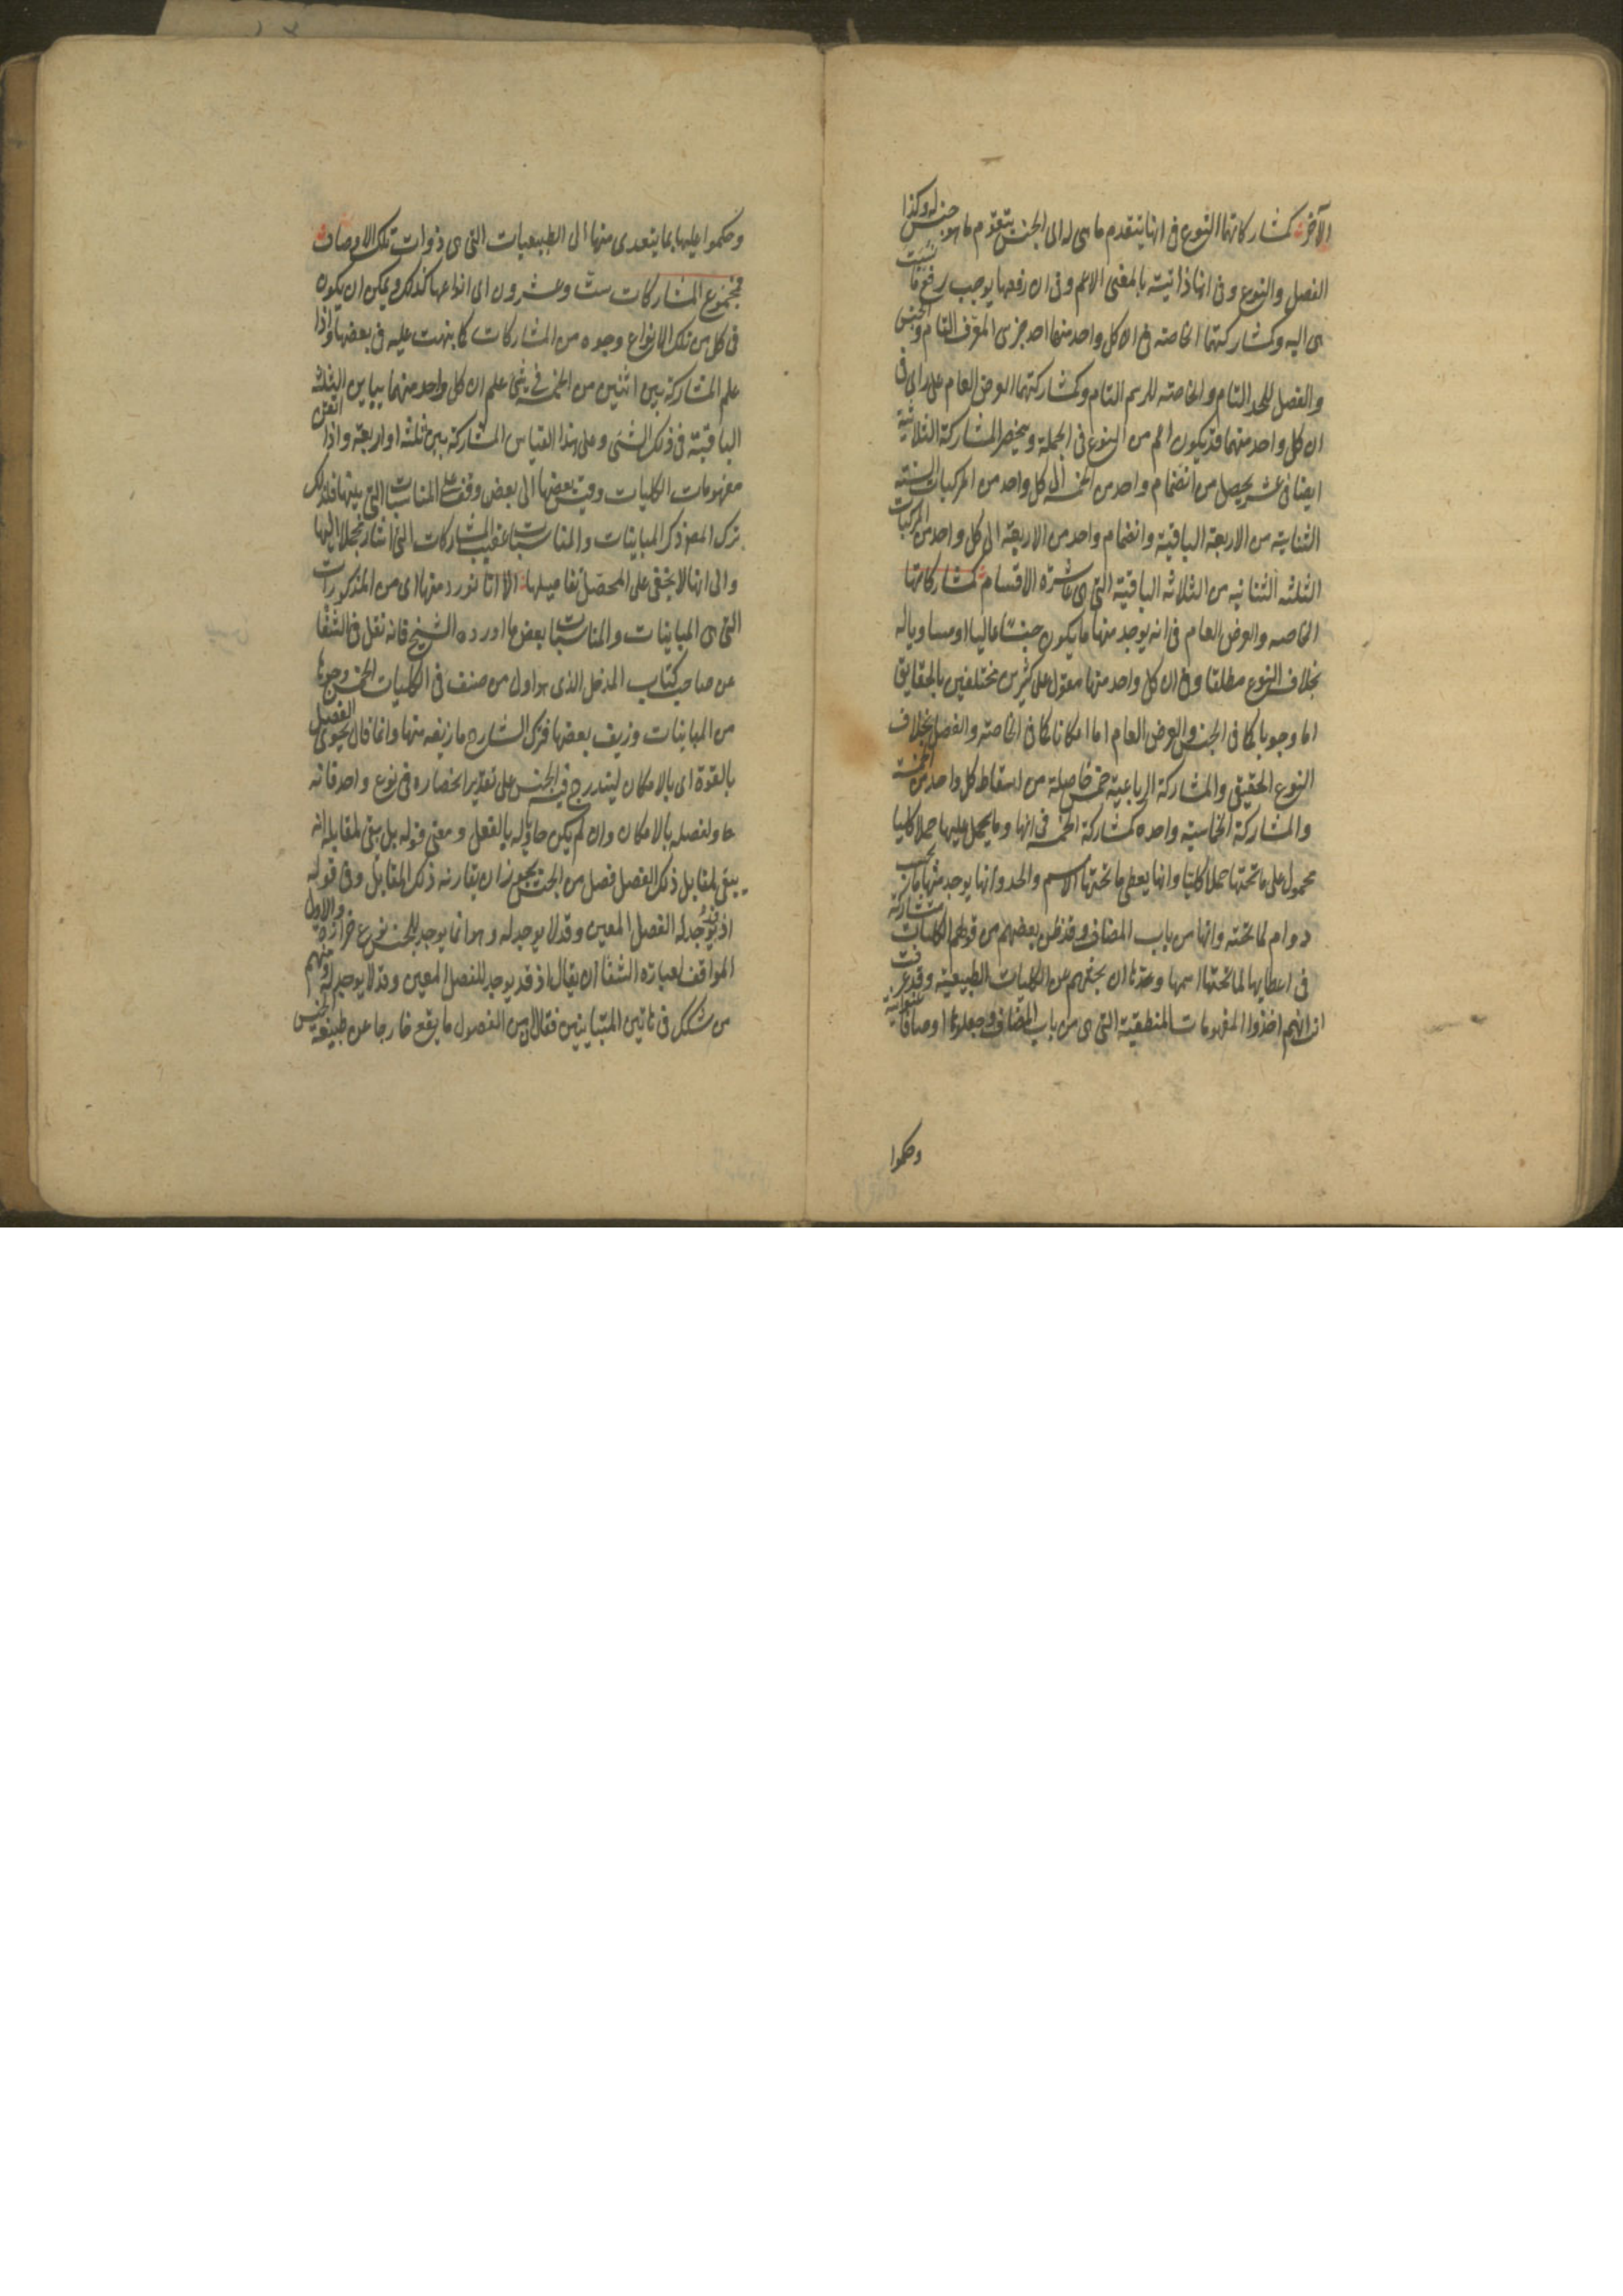 الآخر كمشاركاتها النوع فى انها يتقدم ما هى له الى الجنس يتقدم ما هو جنس له وكذا
الفصل والنوع وفى انها ذاتية بالمعنى الاعم وفى ان رفعها يوجب رفع ما نسبت
هى اليه وكمشاركتهما الخاصة فى ان كل واحد منهما احد جزئى المعرف التام والجنس
والفصل للحد التام والخاصة للرسم التام وكمشاركتهما العرض العام على راى فى
ان كل واحد منهما قد يكون اعم من النوع فى الجملة وينحصر المشاركة الثلاثية
ايضا فى عشر يحصل من انضمام واحد من الخمسة الى كل واحد من المركبات الستة
الثنائية من الاربعة الباقية وانضمام واحد من الاربعة الى كل واحد من المركبات
الثلثه الثنائيه من الثلاثه الباقية التى هى عاشرة الاقسام كمشاركاتها
الخاصه والعرض العام فى انه يوجد منها ما يكون جنسا عاليا او مساويا له
بخلاف النوع مطلقا وفى ان كل واحد منها مقول على كثيرين مختلفين بالحقايق
اما وجوبا كما فى الجنس والعرض العام اما امكانا كما فى الخاصة والفصل بخلاف
النوع الحقيقى والمشاركة الرباعية خمس حاصلة من اسقاط كل واحد من الخمسة
والمشاركة الخماسية واحده كمشاركة الخمسة فى انها وما يحمل عليها حملا كليا
محمول على ما تحتها حملا كليا وانها يعطى ما تحتها الاسم والحد وانها يوجد منها ما يجب
دوام لما تحته وانها من باب المضاف وقد ظن بعضهم من قولهم الكليات متشاركة
فى اعطايها لما تحتها اسمها وحدها ان بحثهم عن الكليات الطبيعية وقد عرفت
انهم اخذوا المفهومات المنطقية التى هى من باب المضاف وجعلوها اوصافا عنوانية
وحكموا
وحكموا عليها بما يتعدى منها الى الطبيعيات التى هى ذوات تلك الاوصاف
فمجموع المشاركات ست وعشرون اى انواعها كذلك ويمكن ان يكون
فى كل من تلك الانواع وجوه من المشاركات كما نبهت عليه فى بعضها واذا
علم المشاركة بين اثنين من الخمسة فى شئ علم ان كل واحد منهما يباين الثلث
الباقية فى ذلك الشئ وعلى هذا القياس المشاركة بين ثلثه او اربعة واذا اتقن
مفهومات الكليات وقيس بعضها الى بعض وقف على المناسبات التى بينها فلذلك
ترك المص ذكر المباينات والمناسبات عقيب المشاركات التى اشار مجملا اليها
والى انها لا يخفى على المحصل تفاصيلها الا انا نورد منها اى من المذكورات
التى هى المباينات والمناسبات بعض ما اورده الشيخ فانه نقل فى الشفا
عن صاحب كتاب المدخل الذى هو اول من صنف فى الكليات الخمس وجوها
من المباينات وزيف بعضها فترك الشارح ما زيفه منها وانما قال يحوى الفصل
بالقوة اى بالامكان ليندرج فيه الجنس على تقدير انحصاره فى نوع واحد فانه
حاو لفصله بالامكان وان لم يكن حاويا له بالفعل ومعنى قوله بل يبقى لمقابله انه
يبقى لمقابل ذلك الفصل فصل من الجنس يجوز ان يقارنه ذلك المقابل وفى قوله
اذ قد يوجد له الفصل المعين وقد لا يوجد له وهو انما يوجد للجنس نوع حزازة والاولى
الموافق لعبارة الشفا ان يقال اذ قد يوجد للفصل المعين وقد لا يوجد له ومنهم
من شكك فى هاتين المتباينين فقال ان من الفصول ما يقع خارجا عن طبيعة الجنس